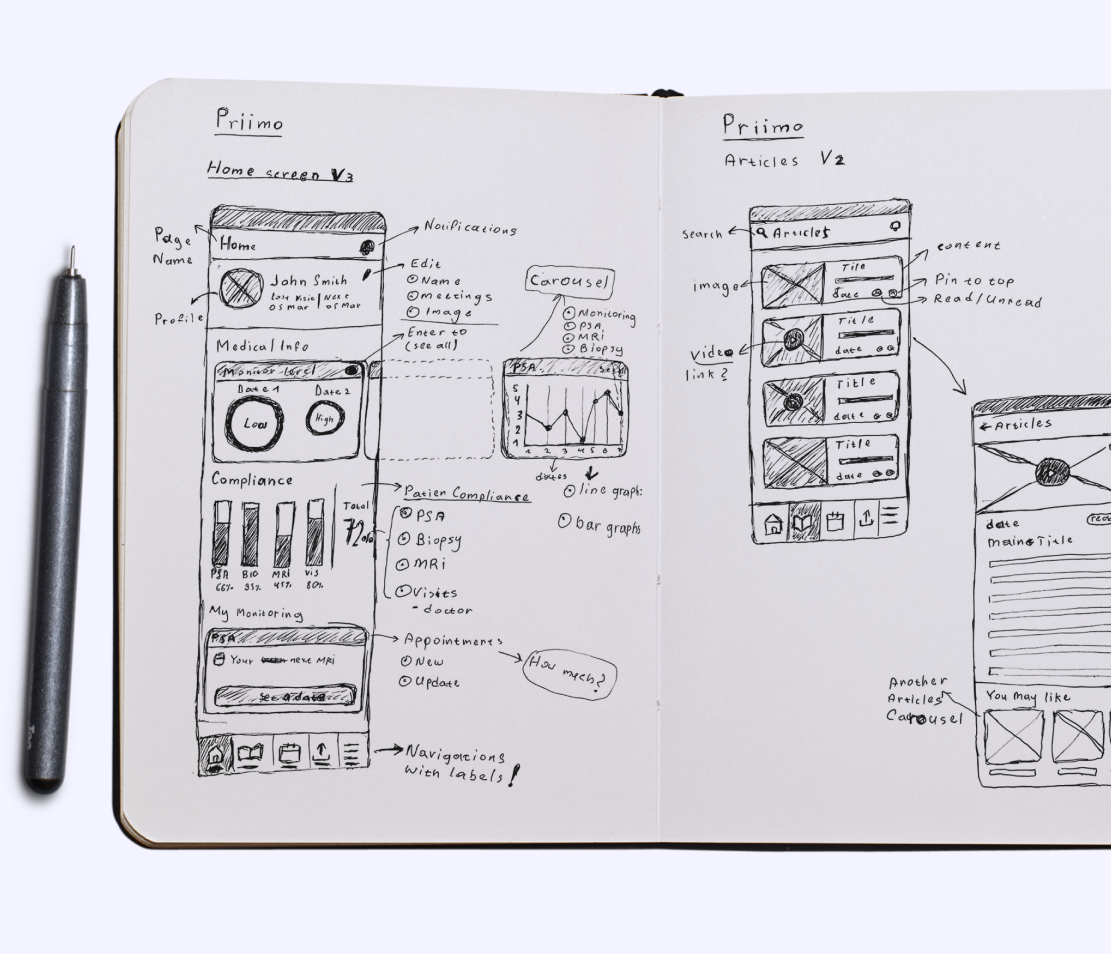 Priimo
Home screen V3
Page
Name
Home
Notifications
John Smith
Last Visit | Next
05 Mar 05 Mar
Profile
Edit
Name
meetings
Image
Enter to
(see all)
Medical Info
Monitor level
Date 1
Date 2
Low
High
Carousel
Monitoring
PSA
MRi
Biopsy
PSA
5
4
3
2
1
1 2 3 4 5 6 7
dates
line graphs
bar graphs
Compliance
Total
72%
PSA BIO MRi Vis
66% 95% 45% 80%
Patien Compliance
PSA
Biopsy
MRi
Visits
- doctor
My Monitoring
PSA
Your next MRi
Set a date
Appointments
New
Update
How much?
Navigations
with labels!
Priimo
Articles V2
search
Articles
image
Title
date
content
Pin to top
Read/Unread
video
link?
Title
date
Title
date
Title
date
← Articles
date
Main Title
You may like
Another
Articles
Carousel